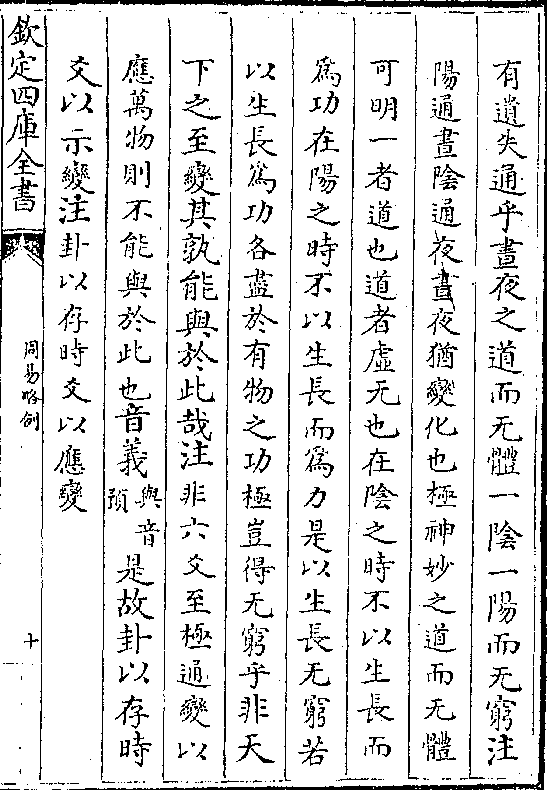 有遺失通乎晝夜之道而无體一陰一陽而无窮注
陽通晝陰通夜晝夜猶變化也極神妙之道而无體
可明一者道也道者虛无也在陰之時不以生長而
為功在陽之時不以生長而為力是以生長无窮若
以生長為功各盡於有物之功極豈得无窮乎非天
下之至變其孰能與於此哉注非六爻至極通變以
應萬物則不能與於此也音義與音預是故卦以存時
爻以示變注卦以存時爻以應變
欽定四庫全書
周易略例
十